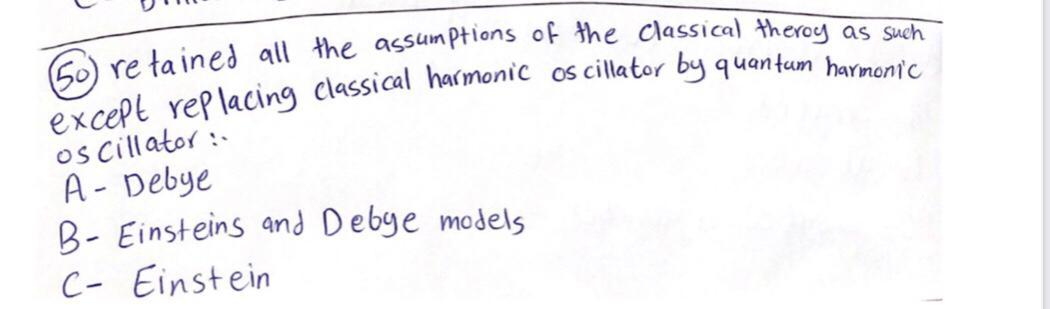 50 retained all the assumptions of the classical theroy as such
except replacing classical harmonic oscillator by quantum harmonic
oscillator :-
A - Debye
B- Einsteins and Debye models
C- Einstein